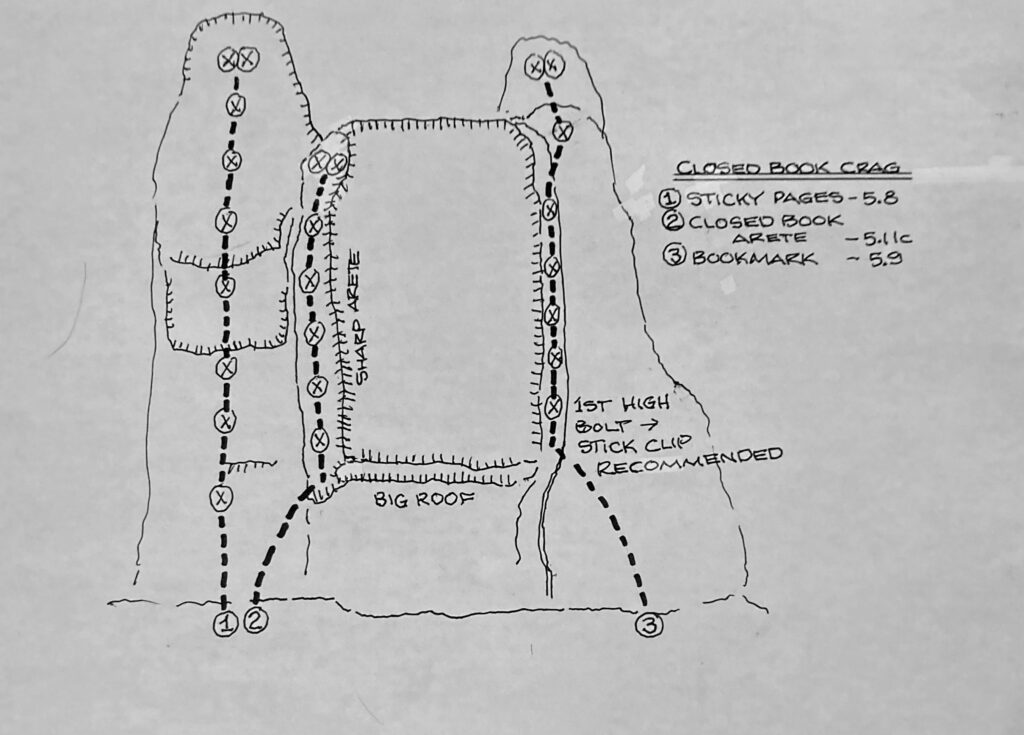 CLOSED BOOK CRAG
① STICKY PAGES - 5.8
② CLOSED BOOK
ARETE - 5.11c
③ BOOKMARK - 5.9
SHARP ARETE
1ST HIGH
BOLT →
STICK CLIP
RECOMMENDED
BIG ROOF
① ② ③